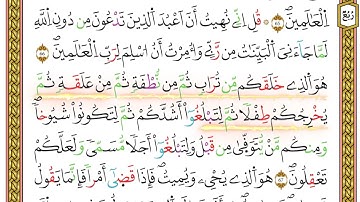 ربع
ٱلۡعَٰلَمِينَ ﴿٦٥﴾ ۞ قُلۡ إِنِّي نُهِيتُ أَنۡ أَعۡبُدَ ٱلَّذِينَ تَدۡعُونَ مِن دُونِ ٱللَّهِ
لَمَّا جَآءَنِيَ ٱلۡبَيِّنَٰتُ مِن رَّبِّي وَأُمِرۡتُ أَنۡ أُسۡلِمَ لِرَبِّ ٱلۡعَٰلَمِينَ ﴿٦٦﴾
هُوَ ٱلَّذِي خَلَقَكُم مِّن تُرَابٖ ثُمَّ مِن نُّطۡفَةٖ ثُمَّ مِنۡ عَلَقَةٖ ثُمَّ
يُخۡرِجُكُمۡ طِفۡلٗا ثُمَّ لِتَبۡلُغُوٓاْ أَشُدَّكُمۡ ثُمَّ لِتَكُونُواْ شُيُوخٗاۚ
وَمِنكُم مَّن يُتَوَفَّىٰ مِن قَبۡلُۖ وَلِتَبۡلُغُوٓاْ أَجَلٗا مُّسَمّٗى وَلَعَلَّكُمۡ
تَعۡقِلُونَ ﴿٦٧﴾ هُوَ ٱلَّذِي يُحۡيِۦ وَيُمِيتُۖ فَإِذَا قَضَىٰٓ أَمۡرٗا فَإِنَّمَا يَقُولُ